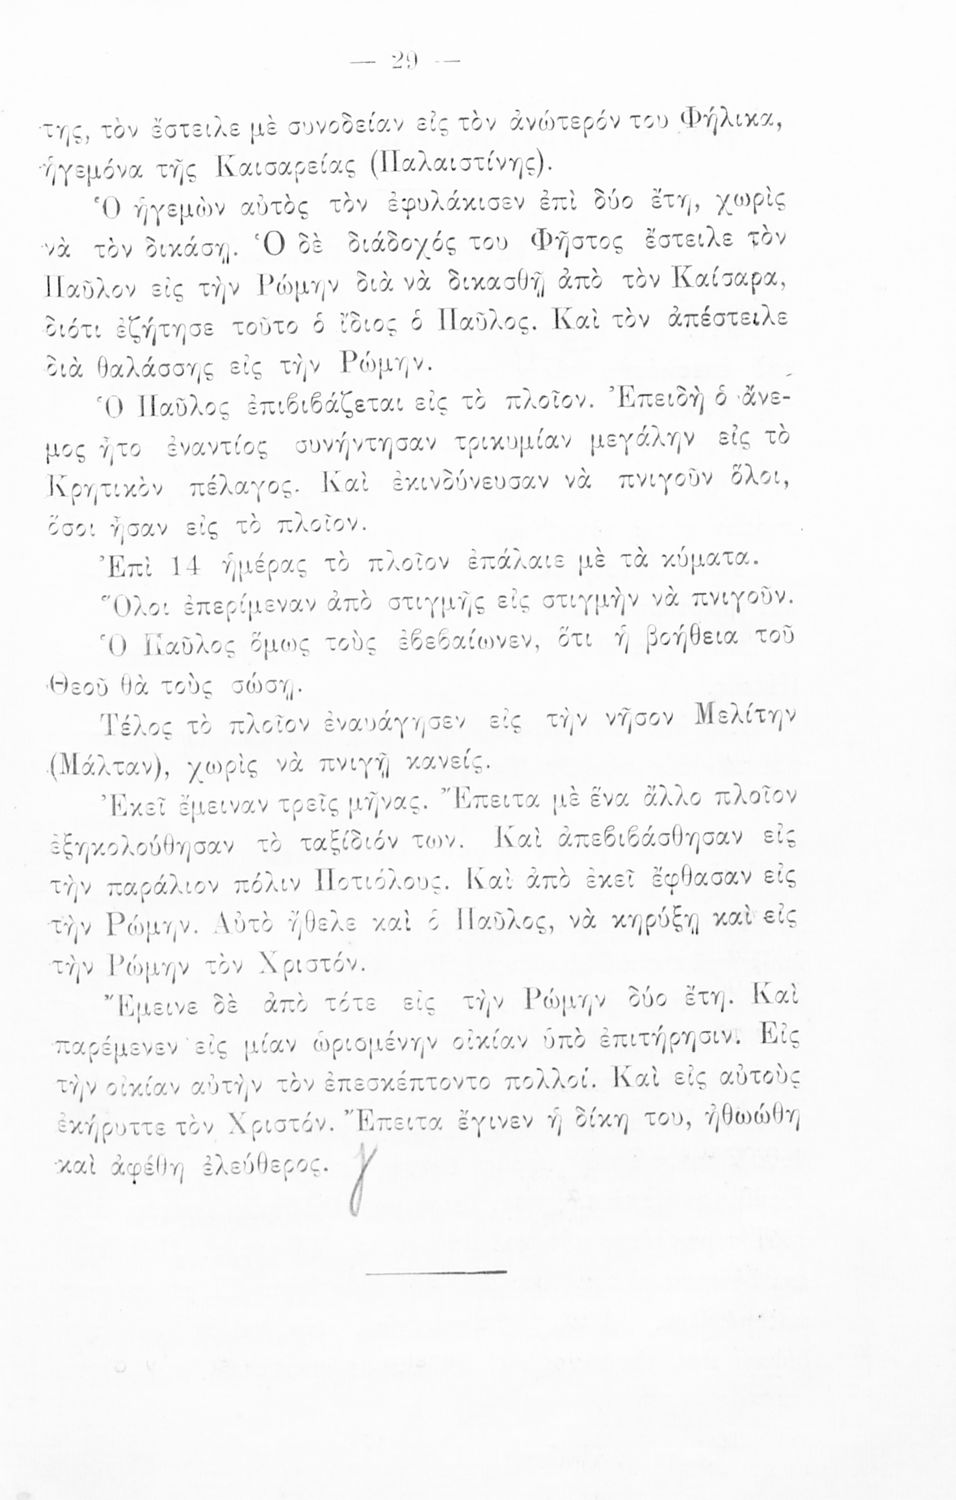 — 29 —
της, τὸν ἔστειλε μὲ συνοδείαν εἰς τὸν ἀνώτερόν του Φήλικα,
ἡγεμόνα τῆς Καισαρείας (Παλαιστίνης).
Ὁ ἡγεμὼν αὐτὸς τὸν ἐφυλάκισεν ἐπὶ δύο ἔτη, χωρὶς
νὰ τὸν δικάσῃ. Ὁ δὲ διάδοχός του Φῆστος ἔστειλε τὸν
Παῦλον εἰς τὴν Ρώμην διὰ νὰ δικασθῇ ἀπὸ τὸν Καίσαρα,
διότι ἐζήτησε τοῦτο ὁ ἴδιος ὁ Παῦλος. Καὶ τὸν ἀπέστειλε
διὰ θαλάσσης εἰς τὴν Ρώμην.
Ὁ Παῦλος ἐπιβιβάζεται εἰς τὸ πλοῖον. Ἐπειδὴ ὁ ἄνε-
μος ἦτο ἐναντίος συνήντησαν τρικυμίαν μεγάλην εἰς τὸ
Κρητικὸν πέλαγος. Καὶ ἐκινδύνευσαν νὰ πνιγοῦν ὅλοι,
ὅσοι ἦσαν εἰς τὸ πλοῖον.
Ἐπὶ 14 ἡμέρας τὸ πλοῖον ἐπάλαιε μὲ τὰ κύματα.
Ὅλοι ἐπερίμεναν ἀπὸ στιγμῆς εἰς στιγμὴν νὰ πνιγοῦν.
Ὁ Παῦλος ὅμως τοὺς ἐβεβαίωνεν, ὅτι ἡ βοήθεια τοῦ
Θεοῦ θὰ τοὺς σώσῃ.
Τέλος τὸ πλοῖον ἐναυάγησεν εἰς τὴν νῆσον Μελίτην
(Μάλταν), χωρὶς νὰ πνιγῇ κανείς.
Ἐκεῖ ἔμειναν τρεῖς μῆνας. Ἔπειτα μὲ ἕνα ἄλλο πλοῖον
ἐξηκολούθησαν τὸ ταξίδιόν των. Καὶ ἀπεβιβάσθησαν εἰς
τὴν παράλιον πόλιν Ποτιόλους. Καὶ ἀπὸ ἐκεῖ ἔφθασαν εἰς
τὴν Ρώμην. Αὐτὸ ἤθελε καὶ ὁ Παῦλος, νὰ κηρύξῃ καὶ εἰς
τὴν Ρώμην τὸν Χριστόν.
Ἔμεινε δὲ ἀπὸ τότε εἰς τὴν Ρώμην δύο ἔτη. Καὶ
παρέμενεν εἰς μίαν ὡρισμένην οἰκίαν ὑπὸ ἐπιτήρησιν. Εἰς
τὴν οἰκίαν αὐτὴν τὸν ἐπεσκέπτοντο πολλοί. Καὶ εἰς αὐτοὺς
ἐκήρυττε τὸν Χριστόν. Ἔπειτα ἔγινεν ἡ δίκη του, ἠθωώθη
καὶ ἀφέθη ἐλεύθερος.